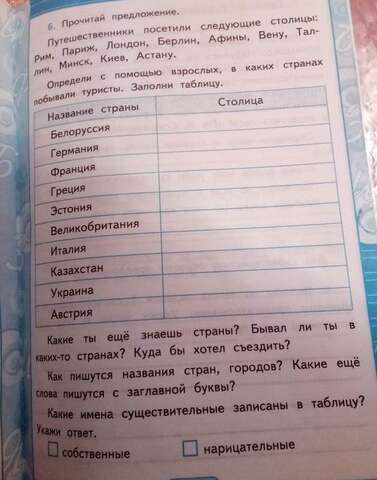 6. Прочитай предложение.
Путешественники посетили следующие столицы:
Рим, Париж, Лондон, Берлин, Афины, Вену, Тал-
лин, Минск, Киев, Астану.
Определи с помощью взрослых, в каких странах
побывали туристы. Заполни таблицу.
Название страны Столица
Белоруссия
Германия
Франция
Греция
Эстония
Великобритания
Италия
Казахстан
Украина
Австрия
Какие ты ещё знаешь страны? Бывал ли ты в
каких-то странах? Куда бы хотел съездить?
Как пишутся названия стран, городов? Какие ещё
слова пишутся с заглавной буквы?
Какие имена существительные записаны в таблицу?
Укажи ответ.
собственные нарицательные